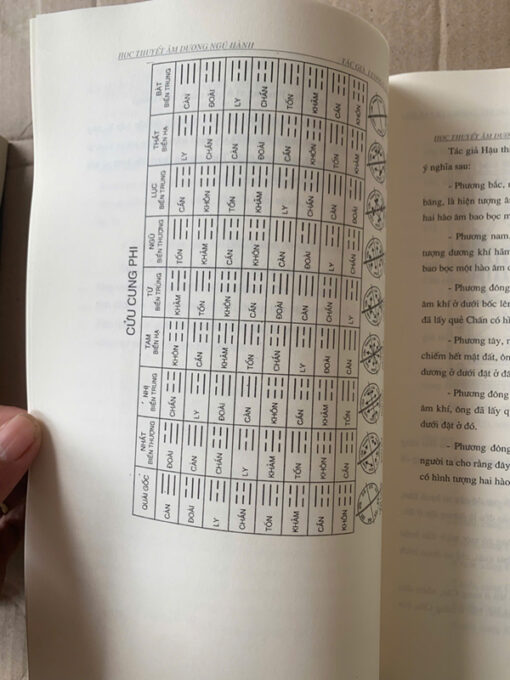 HỌC THUYẾT ÂM DƯƠNG NGŨ HÀNH
TÁC GIẢ
CỬU CUNG PHI
QUÁI GỐC NHẤT BIẾN THƯỢNG NHỊ BIẾN TRUNG TAM BIẾN HẠ TỨ BIẾN TRUNG NGŨ BIẾN THƯỢNG LỤC BIẾN TRUNG THẤT BIẾN HẠ BÁT BIẾN TRUNG
CÀN ĐOÀI CHẤN KHÔN KHẢM TỐN CẤN LY CÀN
ĐOÀI CÀN LY CẤN TỐN KHẢM KHÔN CHẤN ĐOÀI
LY CHẤN ĐOÀI KHẢM KHÔN CẤN TỐN CÀN LY
CHẤN LY CÀN TỐN CẤN KHÔN KHẢM ĐOÀI CHẤN
TỐN KHẢM KHÔN CHẤN ĐOÀI CÀN LY CẤN TỐN
KHẢM TỐN CẤN LY CÀN ĐOÀI CHẤN KHÔN KHẢM
CẤN KHÔN KHẢM ĐOÀI CHẤN LY CÀN TỐN CẤN
KHÔN CẤN TỐN CÀN LY CHẤN ĐOÀI KHẢM KHÔN
HỌC THUYẾT ÂM DƯƠNG
Tác giả Hậu th
ý nghĩa sau:
- Phương bắc,
băng, là hiện tượng â
hai hào âm bao bọc m
- Phương nam,
tượng dương khí hãm
bao bọc một hào âm ở
- Phương đông
âm khí ở dưới bốc lên
đã lấy quẻ Chấn có hì
- Phương tây,
chiếm hết mặt đất, ôn
dương ở dưới đặt ở đâ
- Phương đông
âm khí, ông đã lấy q
dưới đặt ở đó.
- Phương đông
người ta cho rằng đây
có hình tượng hai hào